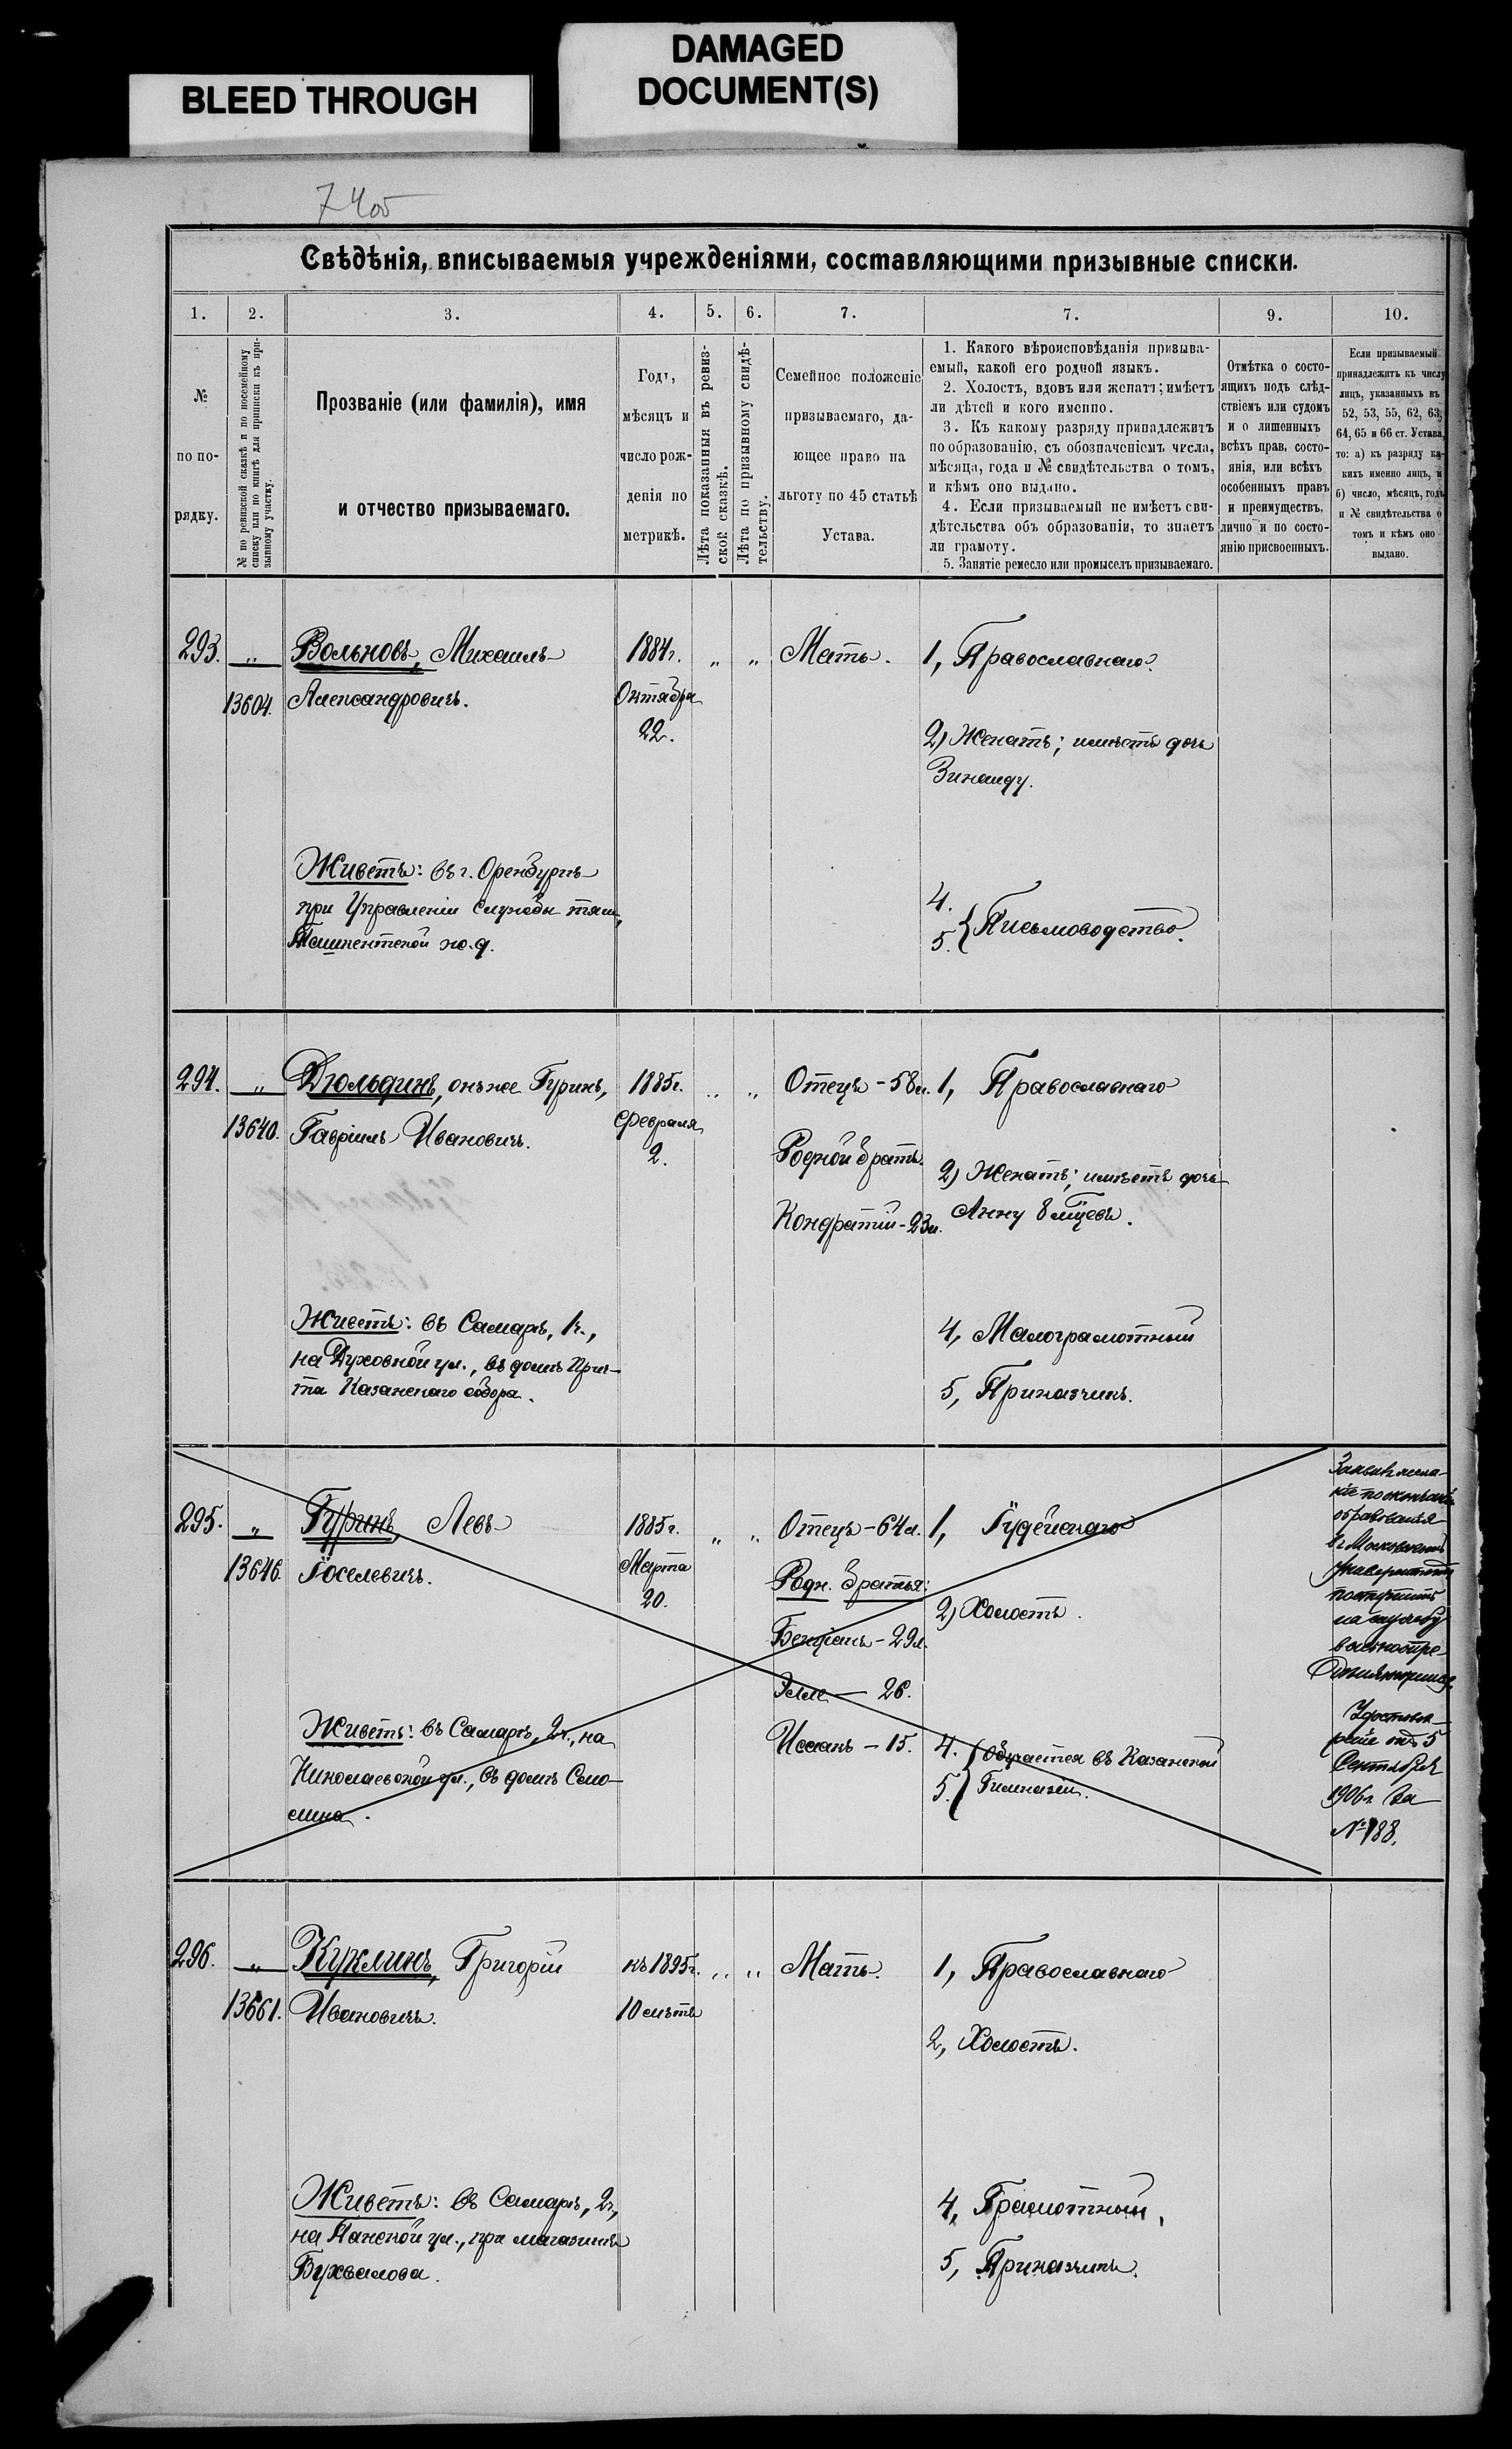 BLEED THROUGH
DAMAGED
DOCUMENT(S)
Свѣдѣнія, вписываемыя учрежденіями, составляющими призывные списки.
1. 2. 3. 4. 5. 6. 7. 7. 9. 10.
№
по по-
рядку.
№ по ревизской сказкѣ и по посемейному
списку или по книгѣ для приписки къ при-
зывному участку.
Прозваніе (или фамилія), имя
и отчество призываемаго.
Годъ,
мѣсяцъ и
число рож-
денія по
метрикѣ.
Лѣта показанныя въ ревиз-
ской сказкѣ.
Лѣта по призывному свидѣ-
тельству.
Семейное положеніе
призываемаго, да-
ющее право на
льготу по 45 статьѣ
Устава.
1. Какого вѣроисповѣданія призыва-
емый, какой его родной языкъ.
2. Холостъ, вдовъ или женатъ; имѣетъ
ли дѣтей и кого именно.
3. Къ какому разряду принадлежитъ
по образованію, съ обозначеніемъ числа,
мѣсяца, года и № свидѣтельства о томъ,
и кѣмъ оно выдано.
4. Если призываемый не имѣетъ сви-
дѣтельства объ образованіи, то знаетъ
ли грамоту.
5. Занятіе ремесло или промыселъ призываемаго.
Отмѣтка о состо-
ящихъ подъ слѣд-
ствіемъ или судомъ
и о лишенныхъ
всѣхъ прав, состо-
янія, или всѣхъ
особенныхъ правъ
и преимуществъ,
лично и по состо-
янію присвоенныхъ.
Если призываемый
принадлежитъ къ числу
лицъ, указанныхъ въ
52, 53, 55, 62, 63,
64, 65 и 66 ст. Устава,
то: а) къ разряду ка-
кихъ именно лицъ, и
б) число, мѣсяцъ, годъ
и № свидѣтельства о
томъ и кѣмъ оно
выдано.
293. „ Вольновъ, Михаилъ 1884г. „ „ Мать. 1, Православнаго.
13604. Александровичъ. Октября
22.
2) Женатъ; имѣетъ дочь
Зинаиду.
Живетъ: въ г. Оренбургѣ
при Управленіи Службы тяги,
Ташкентской ж.д.
4.
5. } Письмоводство.
294. „ Дюльдинъ, онъ же Гуринъ, 1885г. „ „ Отецъ - 58л. 1, Православнаго
13640. Гавріилъ Ивановичъ. Февраля
2.
Родной братъ
Кондратій - 23л.
2) Женатъ; имѣетъ дочь
Анну 8 мѣсяцевъ.
Живетъ: въ Самарѣ, 1ч.,
на Духовной ул., въ домѣ Прич-
та Казанскаго собора.
4, Малограмотный
5, Приказчикъ.
295. „ Гуринъ, Левъ 1885г. „ „ Отецъ - 64л. 1, Іудейскаго
13646. Іоселевичъ. Марта
20.
Родн. братья:
Бенціанъ - 29л.
- 26.
Исаакъ - 15.
2) Холостъ.
Живетъ: въ Самарѣ, 2ч., на
Николаевской ул., въ домѣ
4.
5. } Обучается въ Казанской
Гимназіи.
образованія
въ Московскомъ
Университетѣ
поступить
на службу
5
Сентября
1906г. за
№ 188.
296. „ Куклинъ, Григорій къ 1895г. „ „ Мать. 1, Православнаго
13661. Ивановичъ. 10 лѣтъ
2, Холостъ.
Живетъ: въ Самарѣ, 2ч.,
на Панской ул., при магазинѣ
Бухвалова.
4, Грамотный,
5, Приказчикъ.